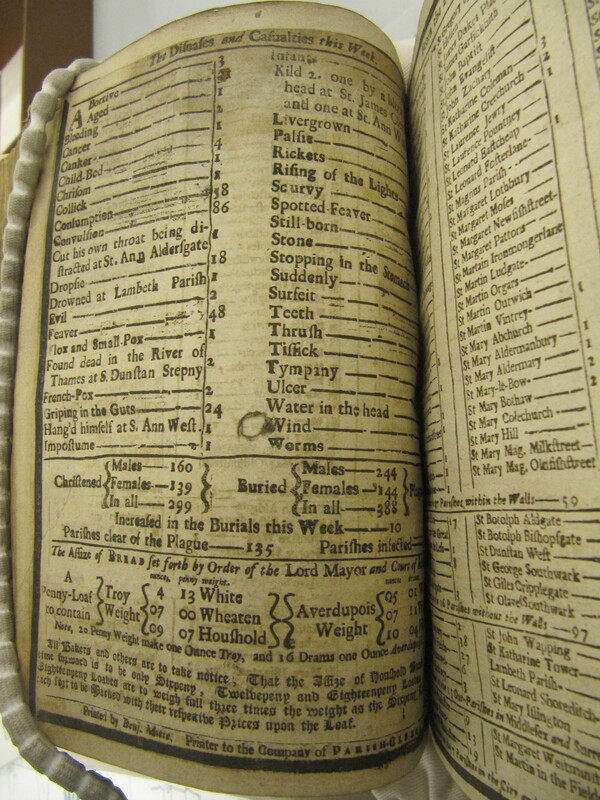 The Diseases and Casualties this Week
ABortive 3
Aged
Bleeding 1
Cancer 2
Canker 1
Child-Bed 4
Chrisom 1
Collick 1
Consumption 58
Convulsion 86
Cut his own throat being di-
stracted at St. Ann Aldersgate 1
Dropsie 18
Drowned at Lambeth Parish 1
Evil 2
Feaver 48
Flox and Small-Pox 1
Found dead in the River of
Thames at S. Dunstan Stepny 2
French-Pox 2
Griping in the Guts 24
Hang'd himself at S. Ann West. 1
Impostume 1
Infants
Kild 2. one by a
head at St. James C
and one at St. Ann W
Livergrown
Palsie
Rickets
Rising of the Lights
Scurvy
Spotted-Feaver
Still-born
Stone
Stopping in the Stomach
Suddenly
Surfeit
Teeth
Thrush
Tissick
Tympany
Ulcer
Water in the head
Wind
Worms
Christened
Males 160
Females 139
In all 299
Buried
Males 244
Females 144
In all 388
Increased in the Burials this Week 10
Parishes clear of the Plague 135 Parishes infected
The Assize of BREAD set forth by Order of the Lord Mayor and Court of
ounces. penny weight.
A Penny-Loaf to contain
Troy Weight
4 13 White
07 00 Wheaten
09 07 Houshold
Averdupois Weight
05 01
07 11
10 04
Note, 20 Penny Weight make one Ounce Troy, and 16 Drams one Ounce
All Bakers and others are to take notice, That the Assize of Houshold
is to be only Sixpenny, Twelvepenny and Eighteenpenny
Eighteenpenny Loaves are to weigh full three times the weight as the Sixpenny
to be Marked with their respective Prices upon the Loaf.
Printed by Benj. Motte, Printer to the Company of PARISH-CLERKS
St Katharine Coleman
St Katharine Creechurch
St Lawrence Jewry
St Lawrence Pountney
St Leonard Eastcheap
St Leonard Fosterlane
St Magnus Parish
St Margaret Lothbury
St Margaret Moses
St Margaret Newfishstreet
St Margaret Pattons
St Martin Ironmongerlane
St Martin Ludgate
St Martin Orgars
St Martin Outwich
St Martin Vintrey
St Mary Abchurch
St Mary Aldermanbury
St Mary Aldermary
St Mary-le-Bow
St Mary Bothaw
St Mary Colechurch
St Mary Hill
St Mary Mag. Milkstreet
St Mary Mag. Oldfishstreet
Parishes within the Walls 59
St Botolph Aldgate
St Botolph Bishopsgate
St Dunstan West
St George Southwark
St Giles Cripplegate
St Olave Southwark
Parishes without the Walls 97
St John Wapping
St Katharine Tower
Lambeth Parish
St Leonard Shoreditch
St Mary Islington
Out-Parishes in Middlesex and Surrey
St Margaret Westminst
St Martin in the Fields